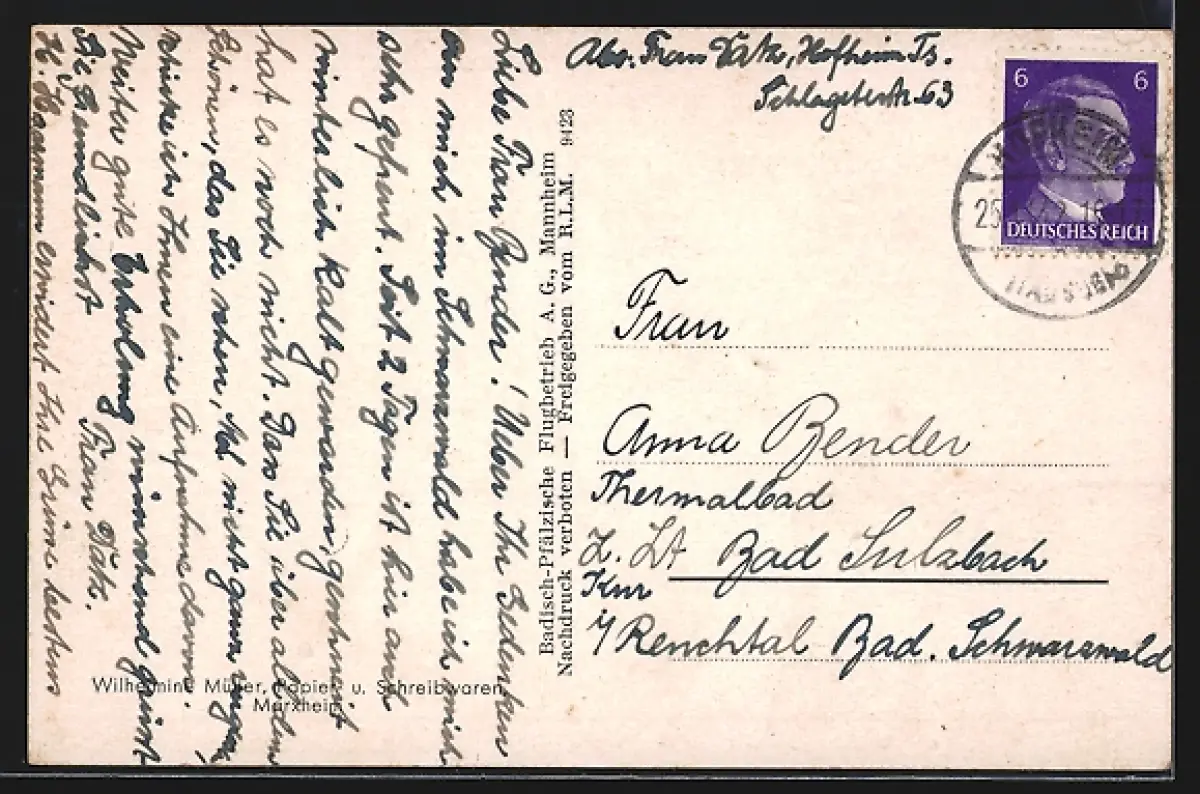 Abs. Frau Dátz, Hofheim Ts.
Schlageterstr. 63
6 6
DEUTSCHES REICH
HOFHEIM
25
(TAUNUS)
Liebe Frau Bender! Ueber Ihr Gedenken
an mich im Schwarzwald habe ich mich
sehr gefreut. Seit 2 Tagen ist hier auch
winterlich kalt geworden, geschneit
hat es noch nicht. Dass Sie über all dem
Schönen, das Sie sehen, nicht ganz
schicke ich Ihnen eine Aufnahme davon.
Weiter gute Erholung wünschend grüsst
Sie freundlichst Frau Dátz.
H. erwidert Ihre Grüsse bestens
Badisch-Pfälzische Flugbetrieb A. G., Mannheim
Nachdruck verboten — Freigegeben vom R.L.M. 9423
Frau
Anna Bender
Thermalbad
Z. Zt Bad Sulzbach
Kur
i/ Renchtal Bad. Schwarzwald
Wilhelmine Müller, Papier- u. Schreibwaren,
Marxheim.